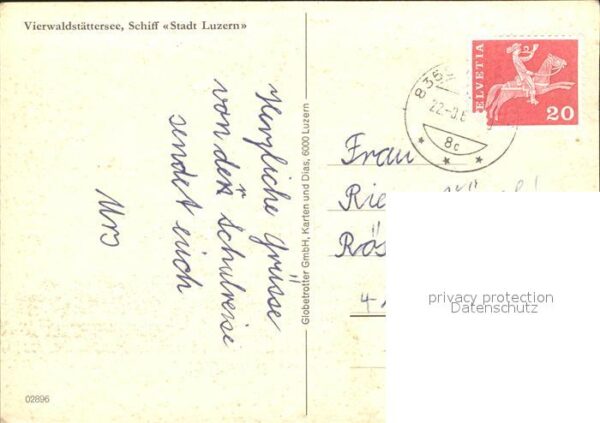 Vierwaldstättersee, Schiff «Stadt Luzern»
Herzliche Grüsse
von der Schulreise
sendet euch
Urs
Globetrotter GmbH, Karten und Dias, 6000 Luzern
02896
HELVETIA
20
835
22.-9.6
8c
Frau
Rie
Rös
privacy protection
Datenschutz